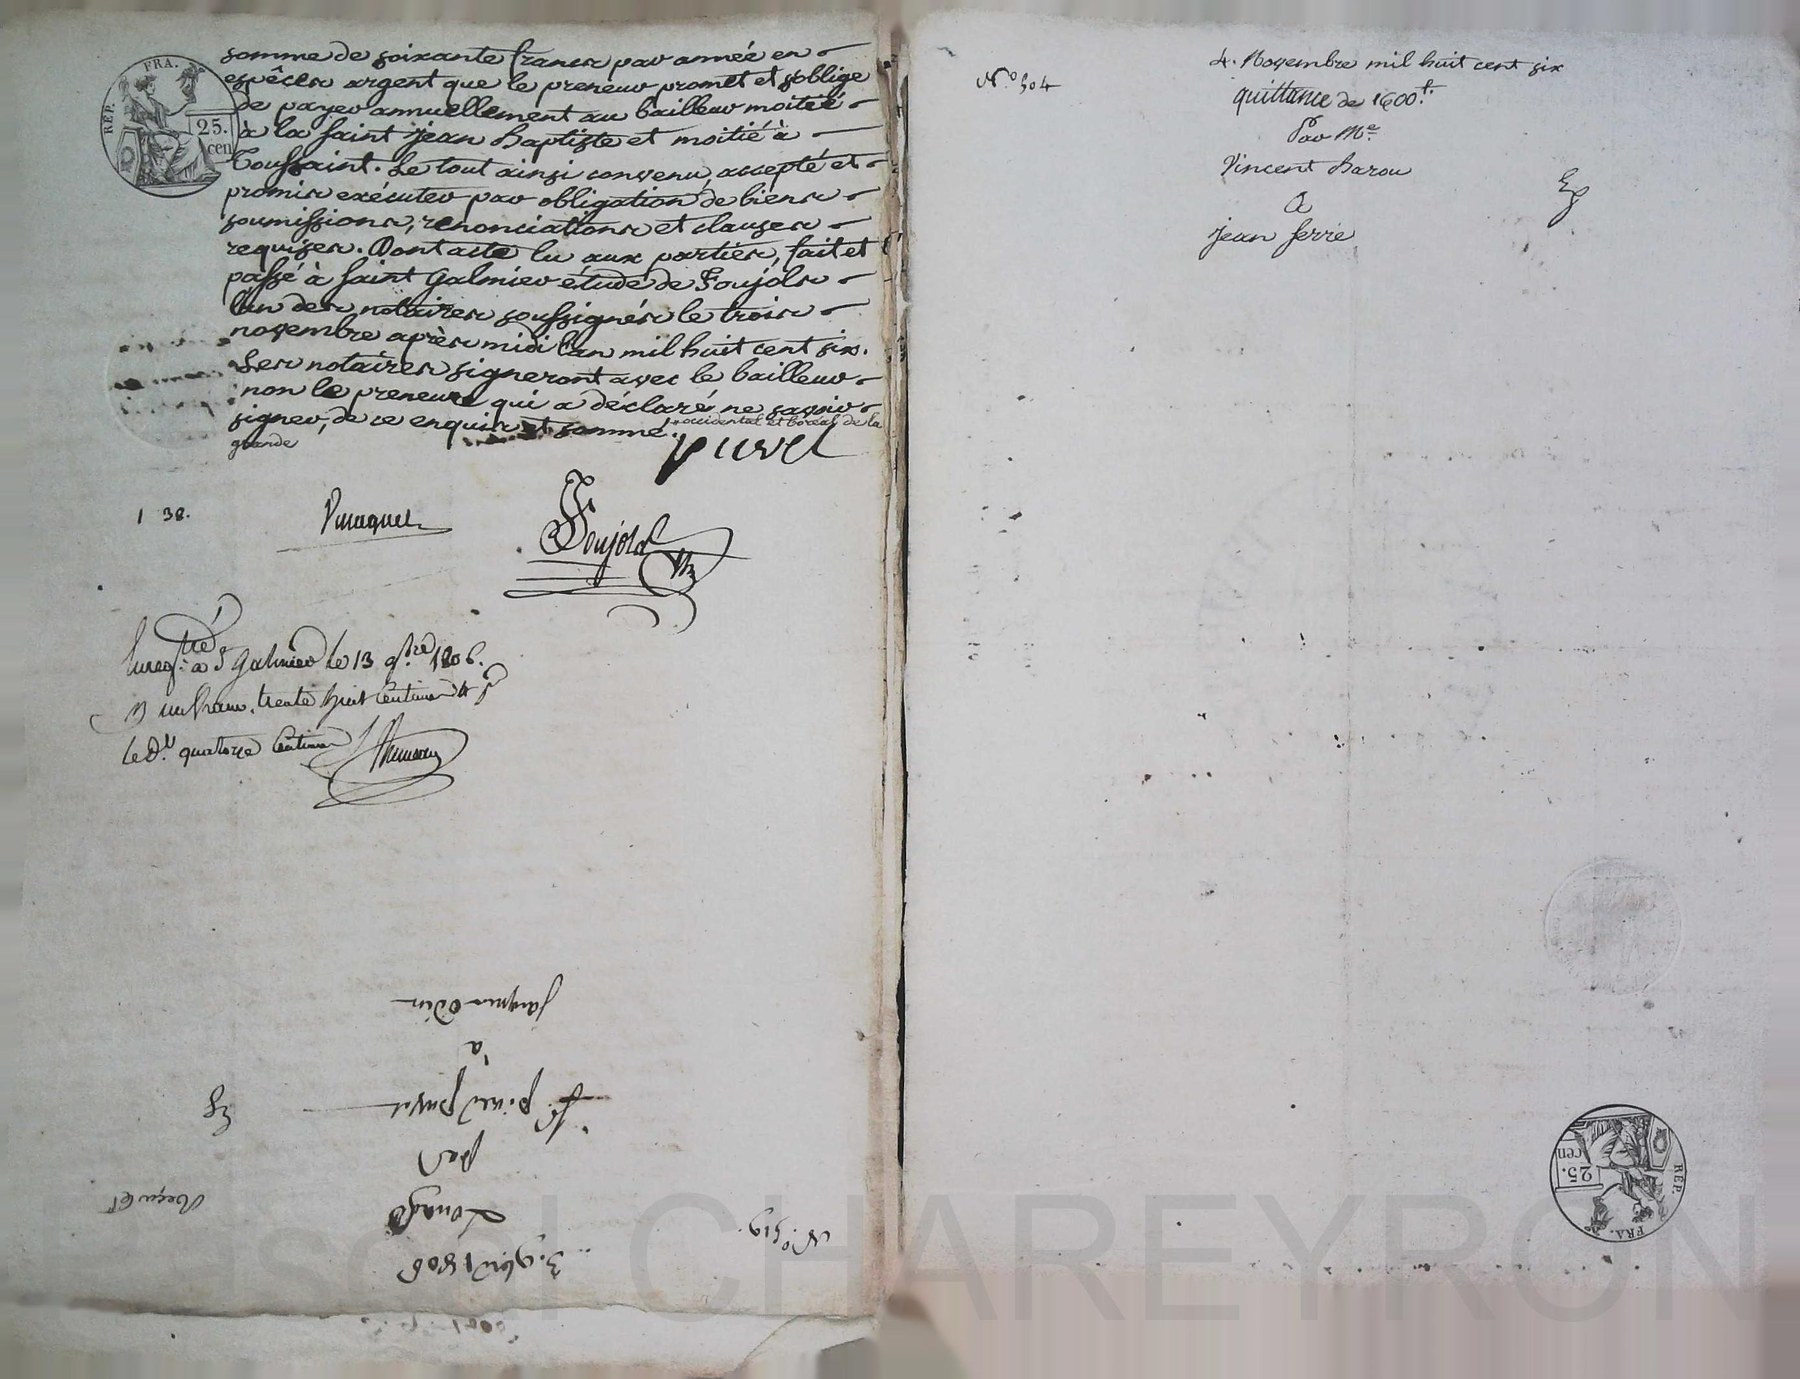 somme de soixante francs par année en
espèces argent que le preneur promet et s'oblige
de payer annuellement au bailleur moitié
à la saint jean Baptiste et moitié à
Toussaint. Le tout ainsi convenu, accepté et
promis exécuter par obligation de biens
soumissions, renonciations et clauses
requises. Dont acte lu aux parties, fait et
passé à saint Galmier étude de Foujols
l'un des notaires soussignés le trois
novembre après midi l'an mil huit cent six.
Les notaires signeront avec le bailleur
non le preneur qui a déclaré ne savoir
signer, de ce enquis et sommé.
occidental et boréal de la
grande
REP. FRA.
25.
cen
1 38.
Foujols
Enreg.tré à St Galmier le 13 9bre 1806.
un franc trente huit Centimes
le d. quatorze Centimes
N.º 519.
3. 9bre 1806
Louage
par
puvel
à
jacques odin
Eg
N.º 504
4. Novembre mil huit cent six
quittance de 1600.f.
Par Me.
Vincent Barou
A
jean ferrie
Eg
REP. FRA.
25.
cen
Pascal CHAREYRON